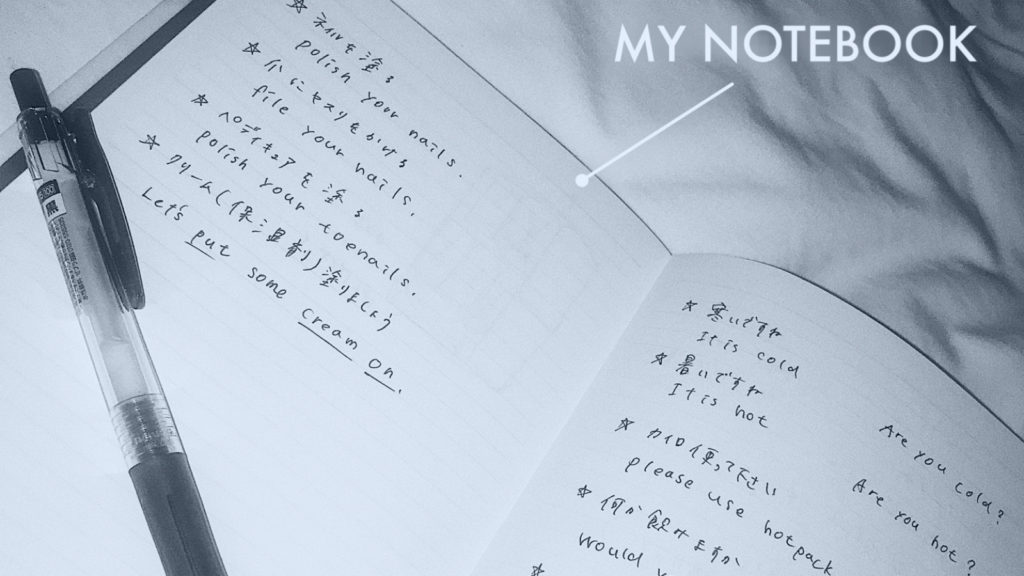 MY NOTEBOOK
☆ ネイルを塗る
polish your nails.
☆ 爪にヤスリをかける
file your nails.
☆ ペディキュアを塗る
polish your toenails.
☆ クリーム(保湿剤)塗りましょう
Let's put some cream on.
☆ 寒いですか
It is cold
Are you cold?
☆ 暑いですか
It is hot
Are you hot?
☆ カイロ使って下さい
please use hotpack
☆ 何か飲みますか
Would
黒